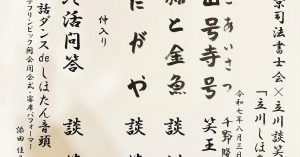 京司法書士会×立川談笑
「立川しほ
令和七年八月三日
ごあいさつ 千野隆
山号寺号 笑王
と金魚 談
たがや 談笑
仲入り
活問答 談笑
話ダンスdeしほたん音頭
リンピック開会閉会式・客席パフォーマー 添田佳